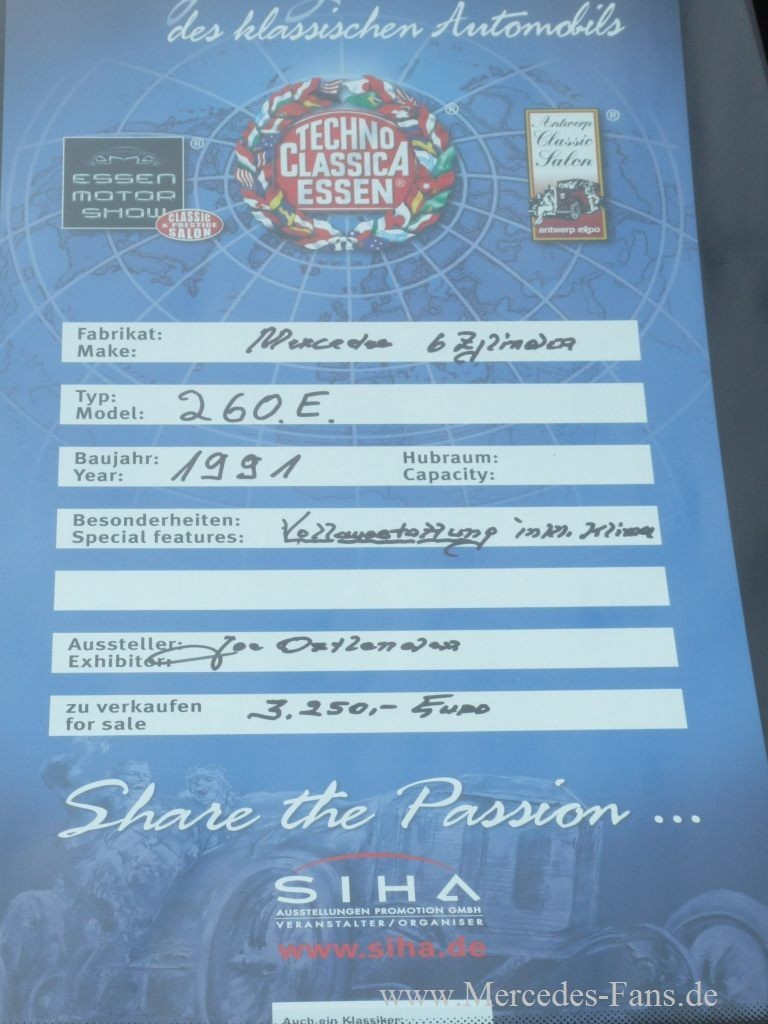 des klassischen Automobils
TECHNO
CLASSICA
ESSEN®
®
Antwerp
Classic
Salon
®
antwerp expo
ESSEN
MOTOR
SHOW
®
CLASSIC
& PRESTIGE
SALON
Fabrikat: Mercedes 6 Zylinder
Make:
Typ: 260.E.
Model:
Baujahr: 1991 Hubraum:
Year: Capacity:
Besonderheiten: Vollausstattung inkl. Klima
Special features:
Aussteller: Joe
Exhibitor:
zu verkaufen 3.250,- Euro
for sale
Share the Passion ...
SIHA
AUSSTELLUNGEN PROMOTION GMBH
VERANSTALTER/ORGANISER
www.siha.de
www.Mercedes-Fans.de
Auch ein Klassiker: